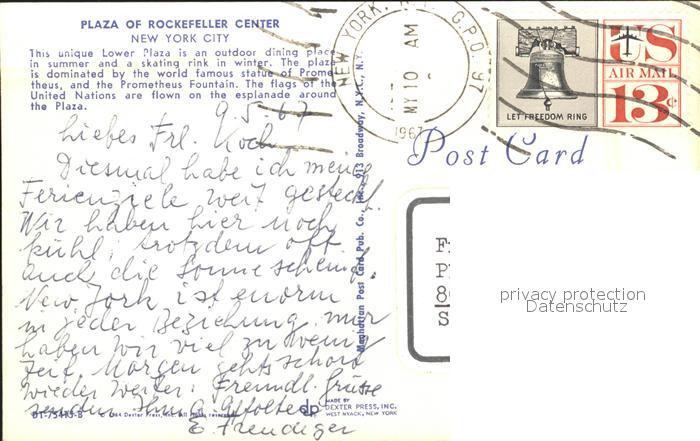 PLAZA OF ROCKEFELLER CENTER
NEW YORK CITY
This unique Lower Plaza is an outdoor dining place
in summer and a skating rink in winter. The plaza
is dominated by the world famous statue of Prome-
theus, and the Prometheus Fountain. The flags of the
United Nations are flown on the esplanade around
the Plaza.
9.5.67
Liebes Frl. Koch,
Diesmal habe ich meine
Ferienziele weit gesteckt.
Wir haben hier noch
kühl, trotzdem oft
auch die Sonne scheint.
New York ist enorm
in jeder Beziehung, nur
haben wir viel zu wenig
Zeit. Morgen gehts schon
wieder weiter. Freundl. Grüsse
senden Ihnen
E. Freudiger
DT-75415-B
MADE BY
dp DEXTER PRESS, INC.
WEST NYACK, NEW YORK
Manhattan Post Card Pub. Co., Inc., 913 Broadway, N.Y.C., N.Y.
NEW YORK, N.Y. G.P.O. 97
AM
MY 10
1967
LET FREEDOM RING
US
AIR MAIL
13c
Post Card
F
P
8
S
privacy protection
Datenschutz